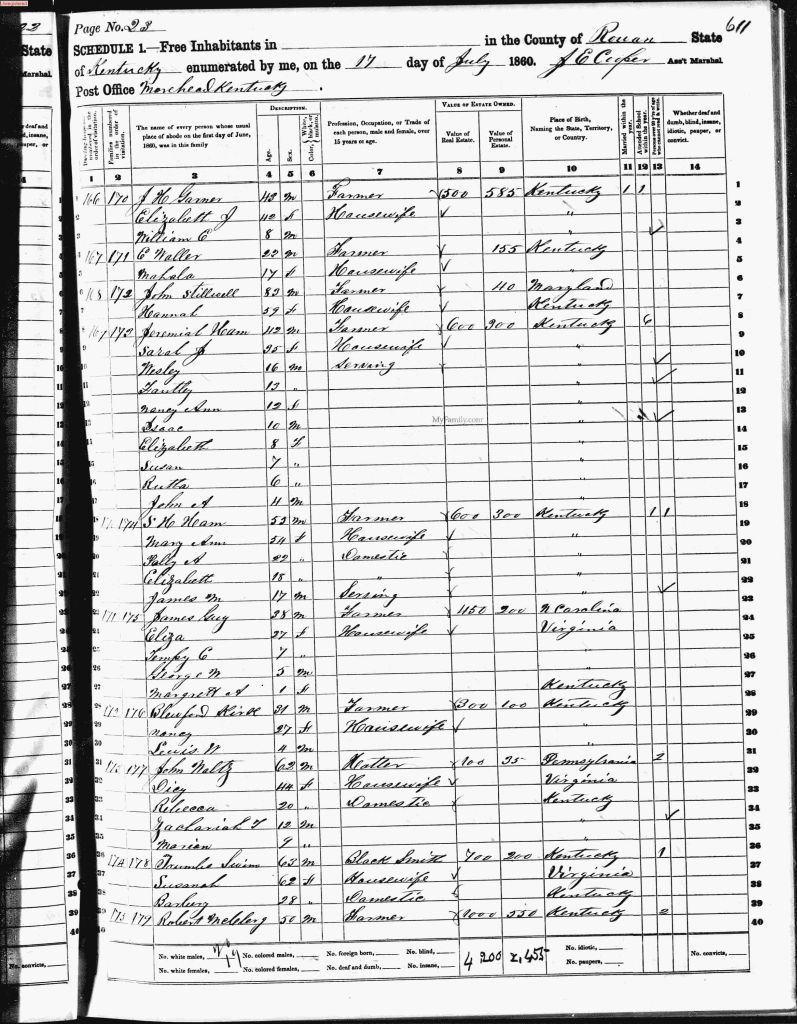 Page No. 23
611
SCHEDULE 1.—Free Inhabitants in in the County of Rowan State
of Kentucky enumerated by me, on the 17 day of July 1860. J E Cuper Ass't Marshal
Post Office Morehead Kentucky
DESCRIPTION. VALUE OF ESTATE OWNED.
The name of every person whose usual place of abode on the first day of June, 1860, was in this family
Age. Sex.
Profession, Occupation, or Trade of each person, male and female, over 15 years of age.
Value of Real Estate. Value of Personal Estate.
Place of Birth, Naming the State, Territory, or Country.
Married within the year. Attended School within the year.
Whether deaf and dumb, blind, insane, idiotic, pauper, or convict.
1 2 3 4 5 6 7 8 9 10 11 12 13 14
166 170 J H Garner 43 m Farmer 500 585 Kentucky 1 1
Elizabeth J 42 f Housewife "
William E 8 m "
167 171 E Waller 22 m Farmer 155 Kentucky
Mahala 17 f Housewife "
168 172 John Stillwell 83 m Farmer 40 Maryland
Hannah 59 f Housewife Kentucky
173 Jeremiah Ham 42 m Farmer 600 300 Kentucky 6
Sarah J 35 f Housewife "
Wesley 16 m Serving "
13 "
Nancy Ann 12 f "
Isaac 10 m "
MyFamily.com
Elizabeth 8 f "
Susan 7 " "
6 " "
John A 4 m "
174 S H Ham 53 m Farmer 600 300 Kentucky 1 1
Mary Ann 54 f Housewife "
Polly A 22 " Domestic "
Elizabeth 18 " " "
James M 17 m Serving "
171 175 James Guy 38 m Farmer 450 200 N Carolina
Eliza 27 f Housewife Virginia
Tempy C 7 " "
George W 5 m "
Margrett A 1 f Kentucky
172 176 Blewford Kirk 31 m Farmer 300 100 Kentucky
Nancy 27 f Housewife "
Lewis W 4 m "
173 177 John Waltz 62 m Hatter 100 35 Pennsylvania 2
Dicy 44 f Housewife Virginia
Rebecca 20 " Domestic Kentucky
Zachariah T 12 m "
Marion 9 " "
174 178 Trumbo Swim 63 m Black Smith 700 200 Kentucky 1
Susanah 62 f Housewife Virginia
Barbery 28 " Domestic Kentucky
175 179 Robert 50 m Farmer 1000 550 Kentucky 2
No. white males, No. colored males, No. foreign born, No. blind, 4 200 2,455 No. idiotic, No. convicts,
No. white females, No. colored females, No. deaf and dumb, No. insane, No. paupers,